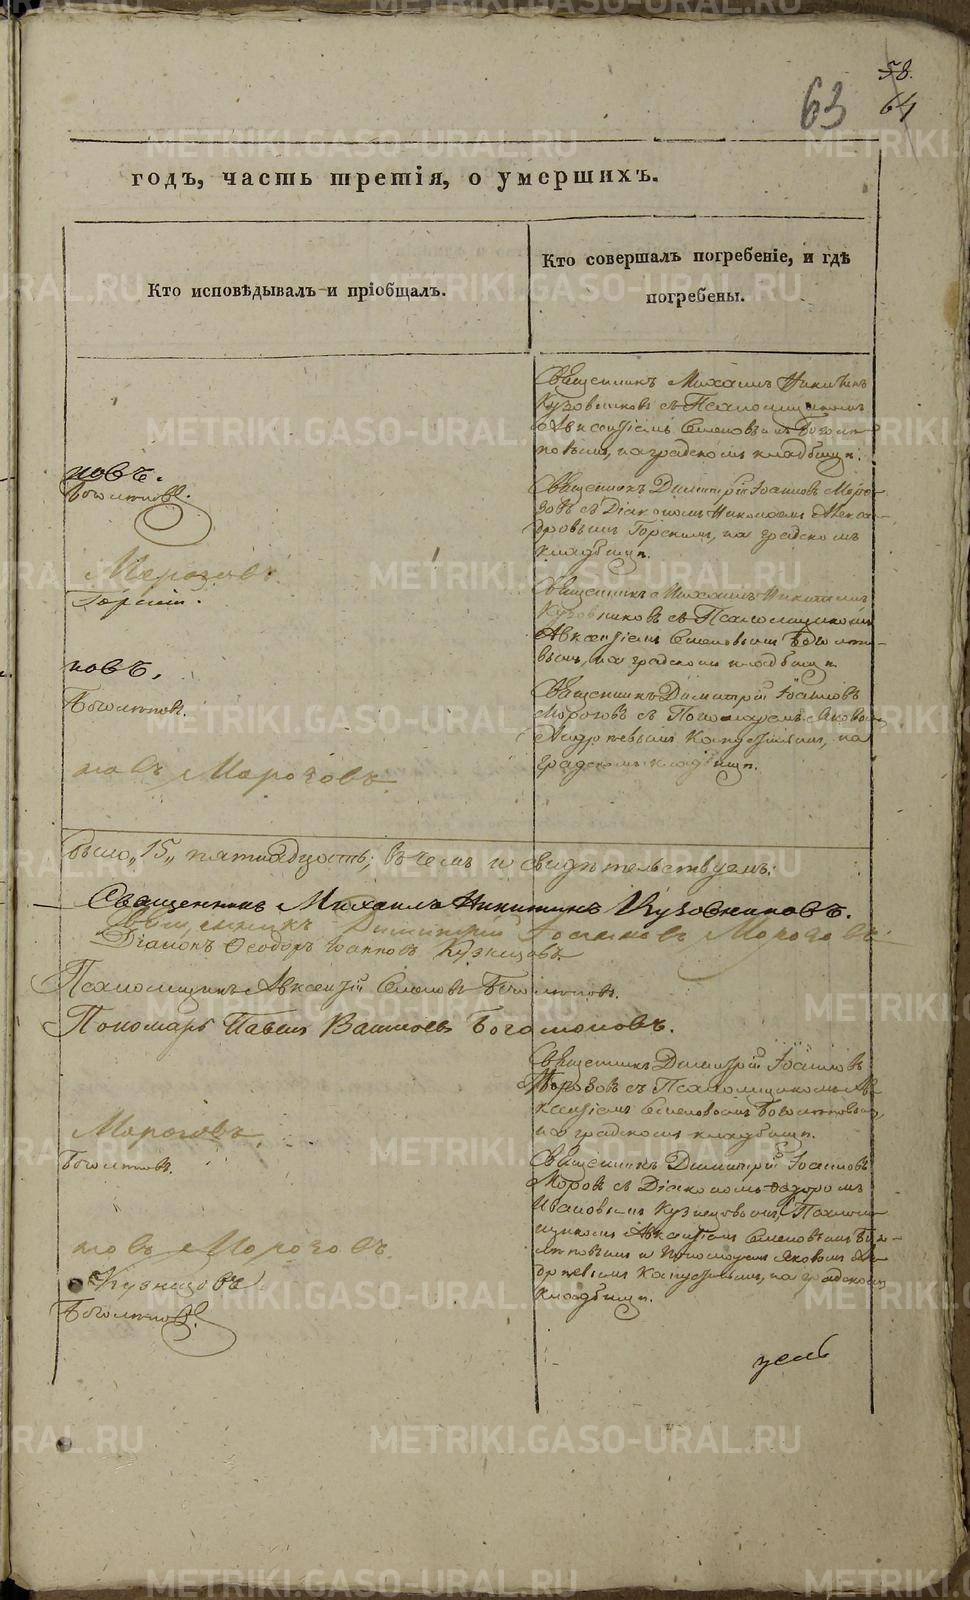 58.
63 64
годъ, часть третія, о умершихъ.
Кто исповѣдывалъ и пріобщалъ.
Кто совершалъ погребеніе, и гдѣ
погребены.
Священникъ Михаилъ Никитинъ
Кузовниковъ съ Псаломщикомъ
Авксентіемъ Семеновымъ Богомо-
ловымъ, на градскомъ кладбищѣ.
новъ.
Богомоловъ.
Священникъ Димитрій Іоанновъ Моро-
зовъ съ Діакономъ Николаемъ Алексан-
дровымъ Горскимъ, на градскомъ
кладбищѣ.
Морозовъ.
Горскій.
Священникъ Михаилъ Никитинъ
Кузовниковъ съ Псаломщикомъ
Авксентіемъ Семеновымъ Богомоло-
вымъ, на градскомъ кладбищѣ.
новъ.
Богомоловъ.
Священникъ Димитрій Іоанновъ
Морозовъ съ Пономаремъ Яковомъ
Андреевымъ Капустинымъ, на
градскомъ кладбищѣ.
новъ Морозовъ.
было „15„ пятнадцать; въ чемъ и свидѣтельствуемъ:
Священникъ Михаилъ Никитинъ Кузовниковъ.
Священникъ Димитрій Іоанновъ Морозовъ
Діаконъ Ѳеодоръ Іоанновъ Кузнецовъ
Псаломщикъ Авксентій Семеновъ Богомоловъ.
Пономарь Павелъ Богомоловъ.
Священникъ Димитрій Іоанновъ
Морозовъ съ Псаломщикомъ Ав-
ксентіемъ Семеновымъ Богомоловымъ,
на градскомъ кладбищѣ.
Морозовъ.
Богомоловъ.
Священникъ Димитрій Іоанновъ
Моровъ съ Діакономъ Ѳедоромъ
Ивановымъ Кузнецовымъ, Псаломъ-
щикомъ Авксентіемъ Семеновымъ Бого-
моловымъ и Пономаремъ Яковомъ Ан-
дреевымъ Капустинымъ, на градскомъ
кладбищѣ.
новъ Морозовъ.
Кузнецовъ
Богомоловъ.
METRIKI.GASO-URAL.RU